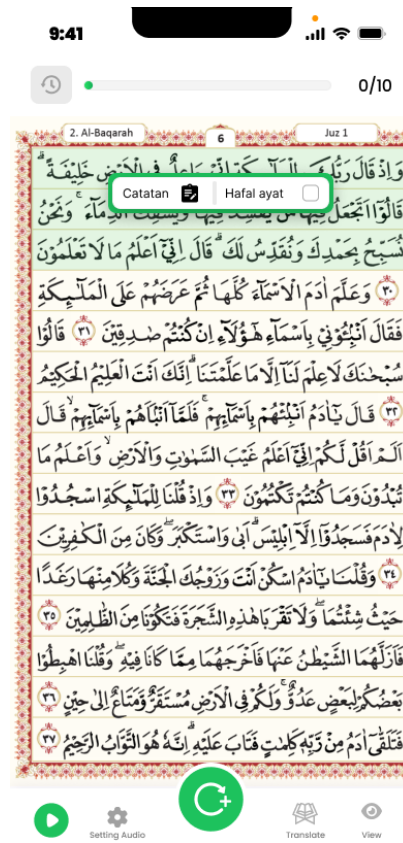 9:41
0/10
2. Al-Baqarah
6
Juz 1
وَاِذْ قَالَ رَبُّكَ فِى الْاَرْضِ خَلِيْفَةً ۗ
Catatan
Hafal ayat
قَالُوْٓا اَتَجْعَلُ فِيْهَا مَنْ يُّفْسِدُ فِيْهَا وَيَسْفِكُ الدِّمَاۤءَۚ وَنَحْنُ
نُسَبِّحُ بِحَمْدِكَ وَنُقَدِّسُ لَكَ ۗ قَالَ اِنِّيْٓ اَعْلَمُ مَا لَا تَعْلَمُوْنَ
٣٠ وَعَلَّمَ اٰدَمَ الْاَسْمَاۤءَ كُلَّهَا ثُمَّ عَرَضَهُمْ عَلَى الْمَلٰۤىِٕكَةِ
فَقَالَ اَنْۢبِـُٔوْنِيْ بِاَسْمَاۤءِ هٰٓؤُلَاۤءِ اِنْ كُنْتُمْ صٰدِقِيْنَ ٣١ قَالُوْا
سُبْحٰنَكَ لَا عِلْمَ لَنَآ اِلَّا مَا عَلَّمْتَنَا ۗاِنَّكَ اَنْتَ الْعَلِيْمُ الْحَكِيْمُ
٣٢ قَالَ يٰٓاٰدَمُ اَنْۢبِئْهُمْ بِاَسْمَاۤىِٕهِمْ ۚ فَلَمَّآ اَنْۢبَاَهُمْ بِاَسْمَاۤىِٕهِمْۙ قَالَ
اَلَمْ اَقُلْ لَّكُمْ اِنِّيْٓ اَعْلَمُ غَيْبَ السَّمٰوٰتِ وَالْاَرْضِۙ وَاَعْلَمُ مَا
تُبْدُوْنَ وَمَا كُنْتُمْ تَكْتُمُوْنَ ٣٣ وَاِذْ قُلْنَا لِلْمَلٰۤىِٕكَةِ اسْجُدُوْا
لِاٰدَمَ فَسَجَدُوْٓا اِلَّآ اِبْلِيْسَۗ اَبٰى وَاسْتَكْبَرَۖ وَكَانَ مِنَ الْكٰفِرِيْنَ
٣٤ وَقُلْنَا يٰٓاٰدَمُ اسْكُنْ اَنْتَ وَزَوْجُكَ الْجَنَّةَ وَكُلَا مِنْهَا رَغَدًا
حَيْثُ شِئْتُمَاۖ وَلَا تَقْرَبَا هٰذِهِ الشَّجَرَةَ فَتَكُوْنَا مِنَ الظّٰلِمِيْنَ ٣٥
فَاَزَلَّهُمَا الشَّيْطٰنُ عَنْهَا فَاَخْرَجَهُمَا مِمَّا كَانَا فِيْهِۖ وَقُلْنَا اهْبِطُوْا
بَعْضُكُمْ لِبَعْضٍ عَدُوٌّۚ وَلَكُمْ فِى الْاَرْضِ مُسْتَقَرٌّ وَّمَتَاعٌ اِلٰى حِيْنٍ ٣٦
فَتَلَقّٰٓى اٰدَمُ مِنْ رَّبِّهٖ كَلِمٰتٍ فَتَابَ عَلَيْهِۗ اِنَّهٗ هُوَ التَّوَّابُ الرَّحِيْمُ ٣٧
Setting Audio
Translate
View